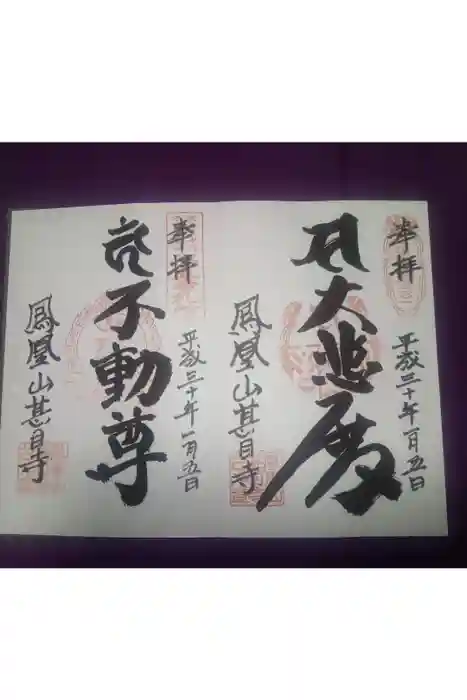 奉拝
平成三十年一月五日
大悲殿
鳳凰山甚目寺
奉拝
平成三十年一月五日
不動尊
鳳凰山甚目寺